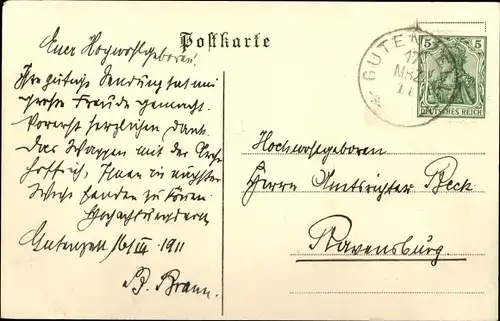 Postkarte
Euer Hochwohlgeboren!
Ihre gütige Sendung hat mir
große Freude gemacht.
Vorerst herzlichen Dank.
Das Wappen mit der
hoffe ich, Ihnen in nächster
senden zu können.
Hochachtungsvoll
Gutenzell 16/III. 1911
B. Braun.
GUTENZELL
17
MRZ
11
5 5
DEUTSCHES REICH
Hochwohlgeboren
Herrn Amtsrichter Beck
Ravensburg.